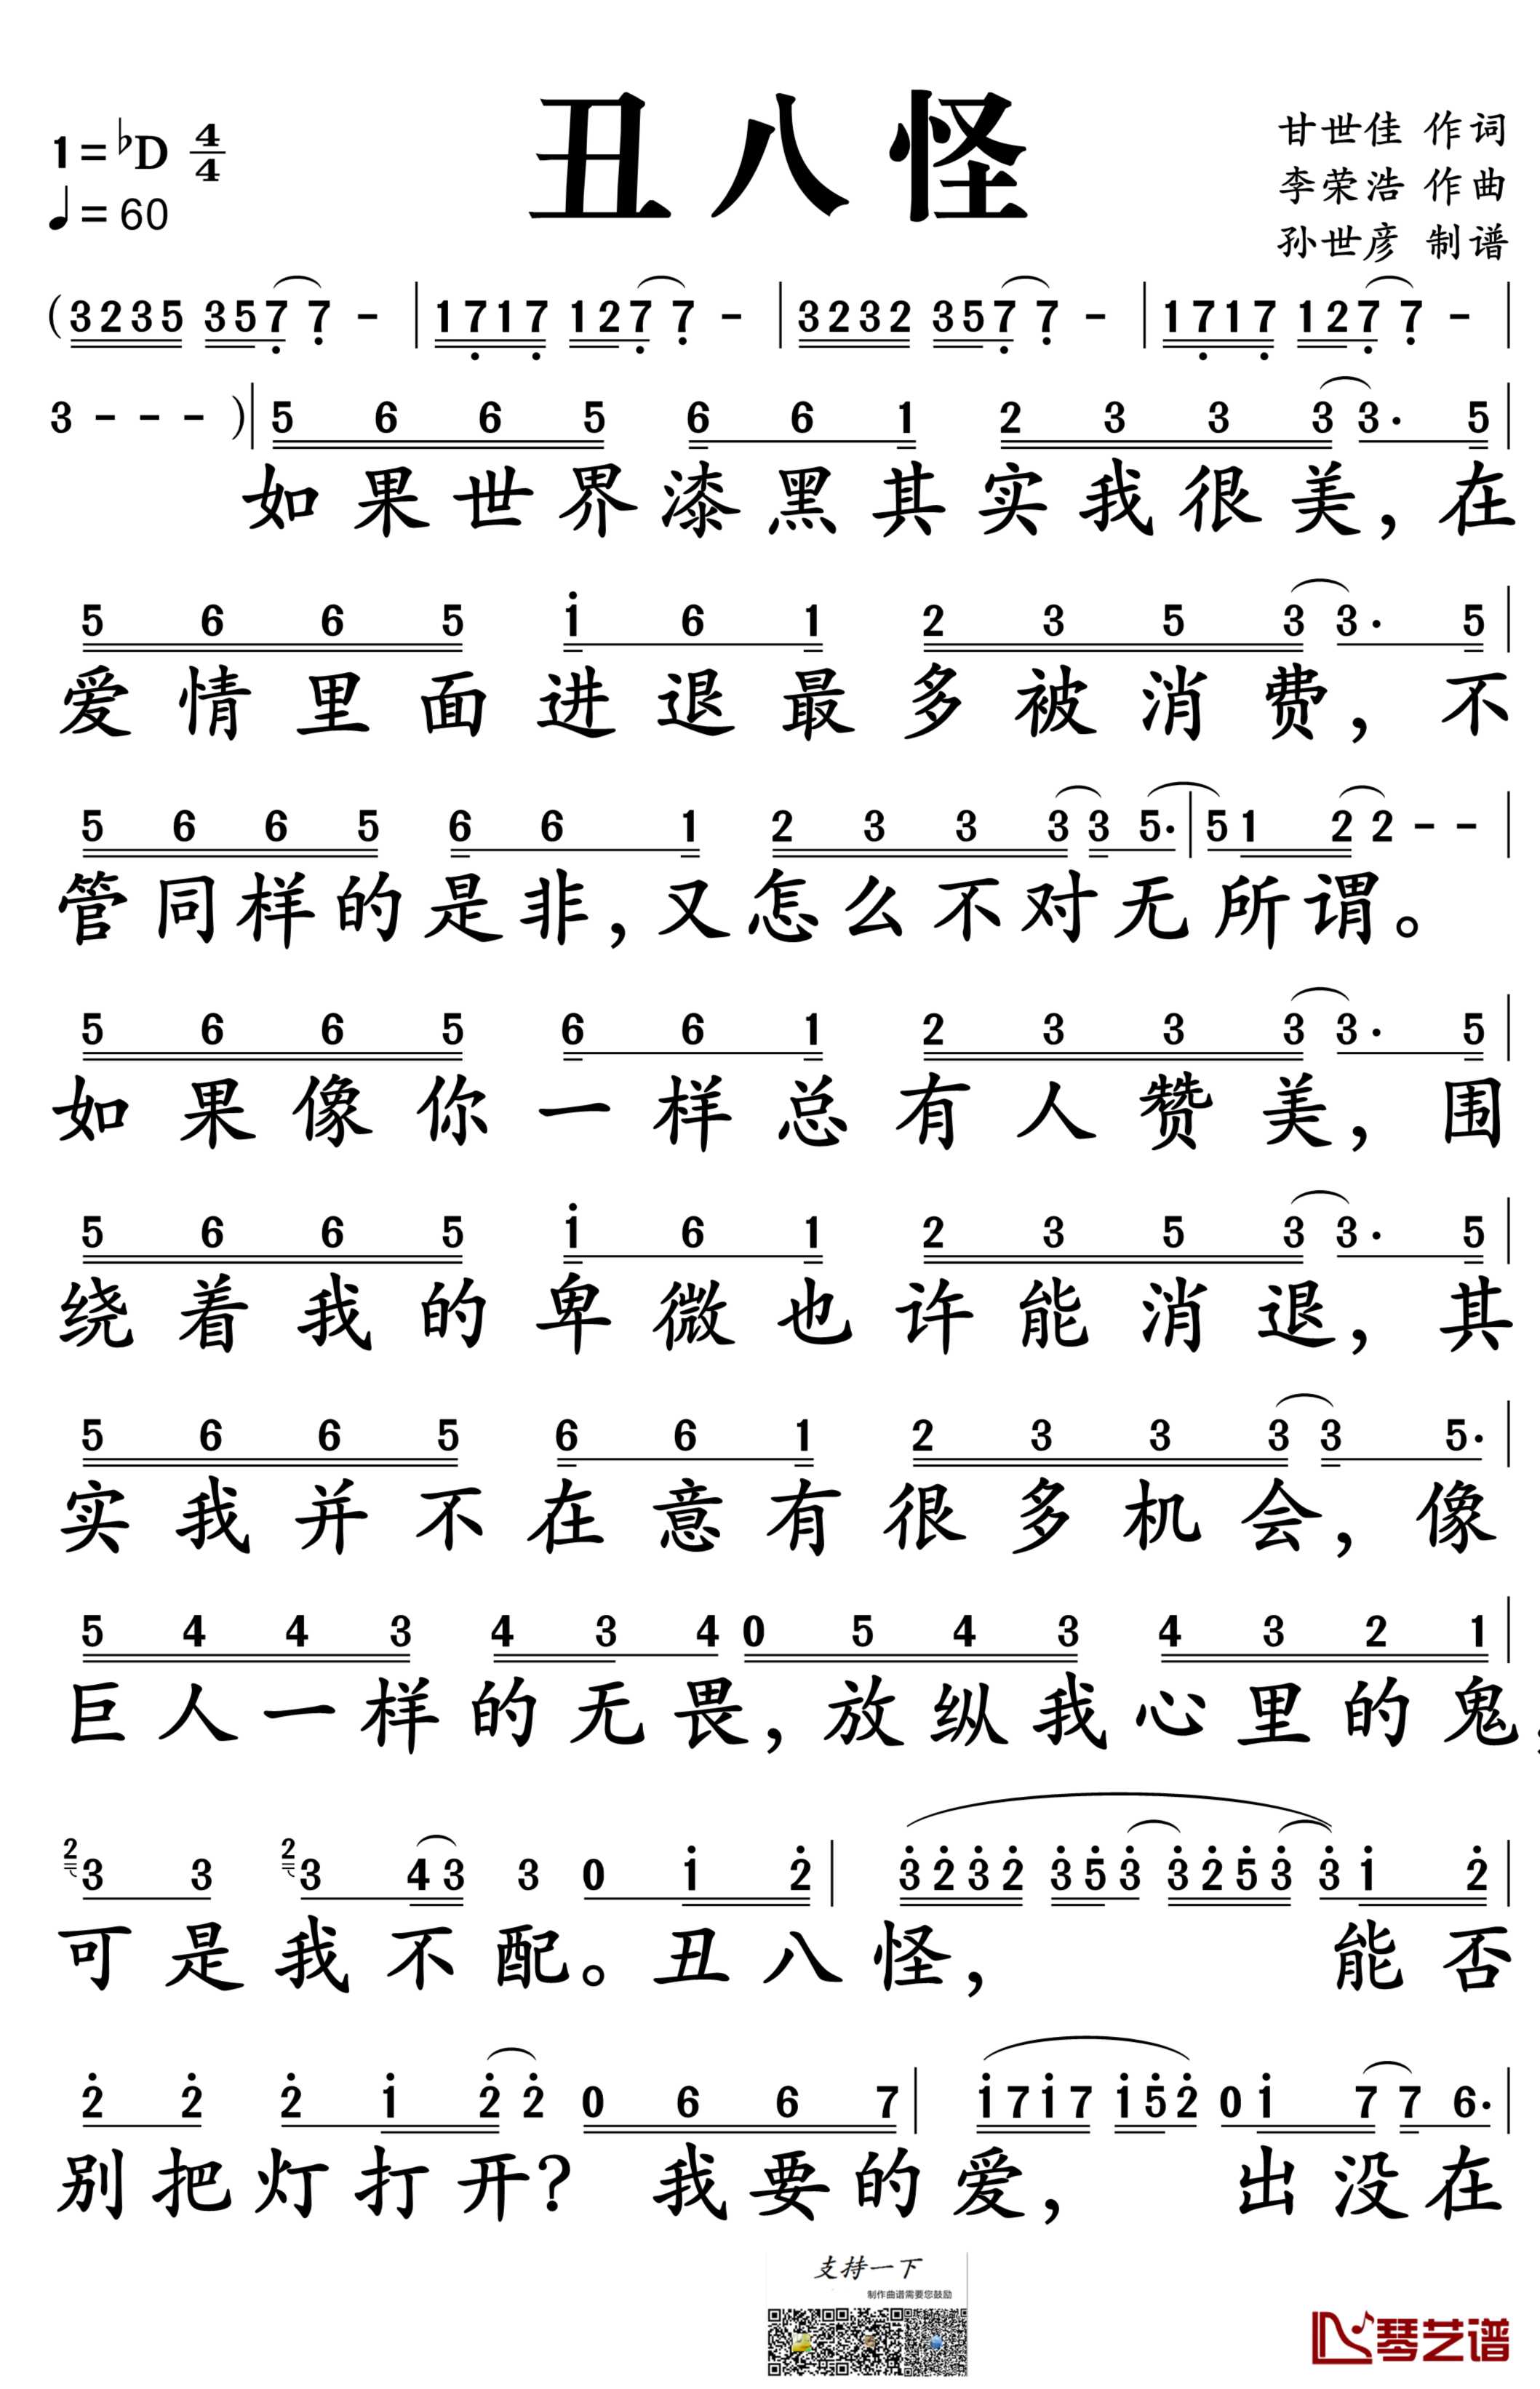 丑八怪
1=♭D 4/4
♩=60
甘世佳 作词
李荣浩 作曲
孙世彦 制谱
(3235 3577 - | 1717 1277 - | 3232 3577 - | 1717 1277 - |
3 - - - )| 5 6 6 5 6 6 1 2 3 3 3 3· 5 |
如果世界漆黑其实我很美,在
5 6 6 5 i 6 1 2 3 5 3 3· 5 |
爱情里面进退最多被消费,不
5 6 6 5 6 6 1 2 3 3 3 3 5· | 5 1 2 2 - - |
管同样的是非,又怎么不对无所谓。
5 6 6 5 6 6 1 2 3 3 3 3· 5 |
如果像你一样总有人赞美,围
5 6 6 5 i 6 1 2 3 5 3 3· 5 |
绕着我的卑微也许能消退,其
5 6 6 5 6 6 1 2 3 3 3 3 5· |
实我并不在意有很多机会,像
5 4 4 3 4 3 4 0 5 4 3 4 3 2 1 |
巨人一样的无畏,放纵我心里的鬼,
2 3 3 2 3 4 3 3 0 i 2 | 3 2 3 2 3 5 3 3 2 5 3 3 i 2 |
可是我不配。丑八怪,能否
2 2 2 i 2 2 0 6 6 7 | i 7 i 7 i 5 2 0 i 7 7 6· |
别把灯打开?我要的爱,出没在
支持一下
制作曲谱需要您鼓励
琴艺谱